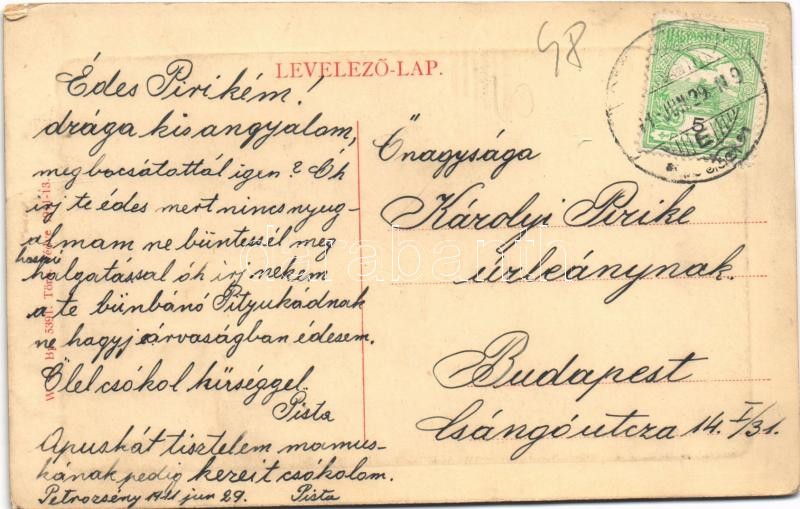 58
LEVELEZŐ-LAP.
MAGYAR KIR. POSTA
5
JUN. 29
Édes Pirikém!
drága kis angyalom,
megbocsátottál igen? Óh
írj te édes mert nincs nyug-
almam ne büntessél meg
hosszú
halgatással óh irj nekem
a te bünbanó Pityukádnak
ne hagyj árvaságban édesem.
Ölel csókol hűséggel
Pista
Apuskát tisztelem mamus-
kának pedig kezeit csókolom.
Petrozsény 1911 jun 29. Pista
Őnagysága
Károlyi Pirike
úrleánynak.
Budapest
Csángó utcza 14. I/31.
darabanth
5391.